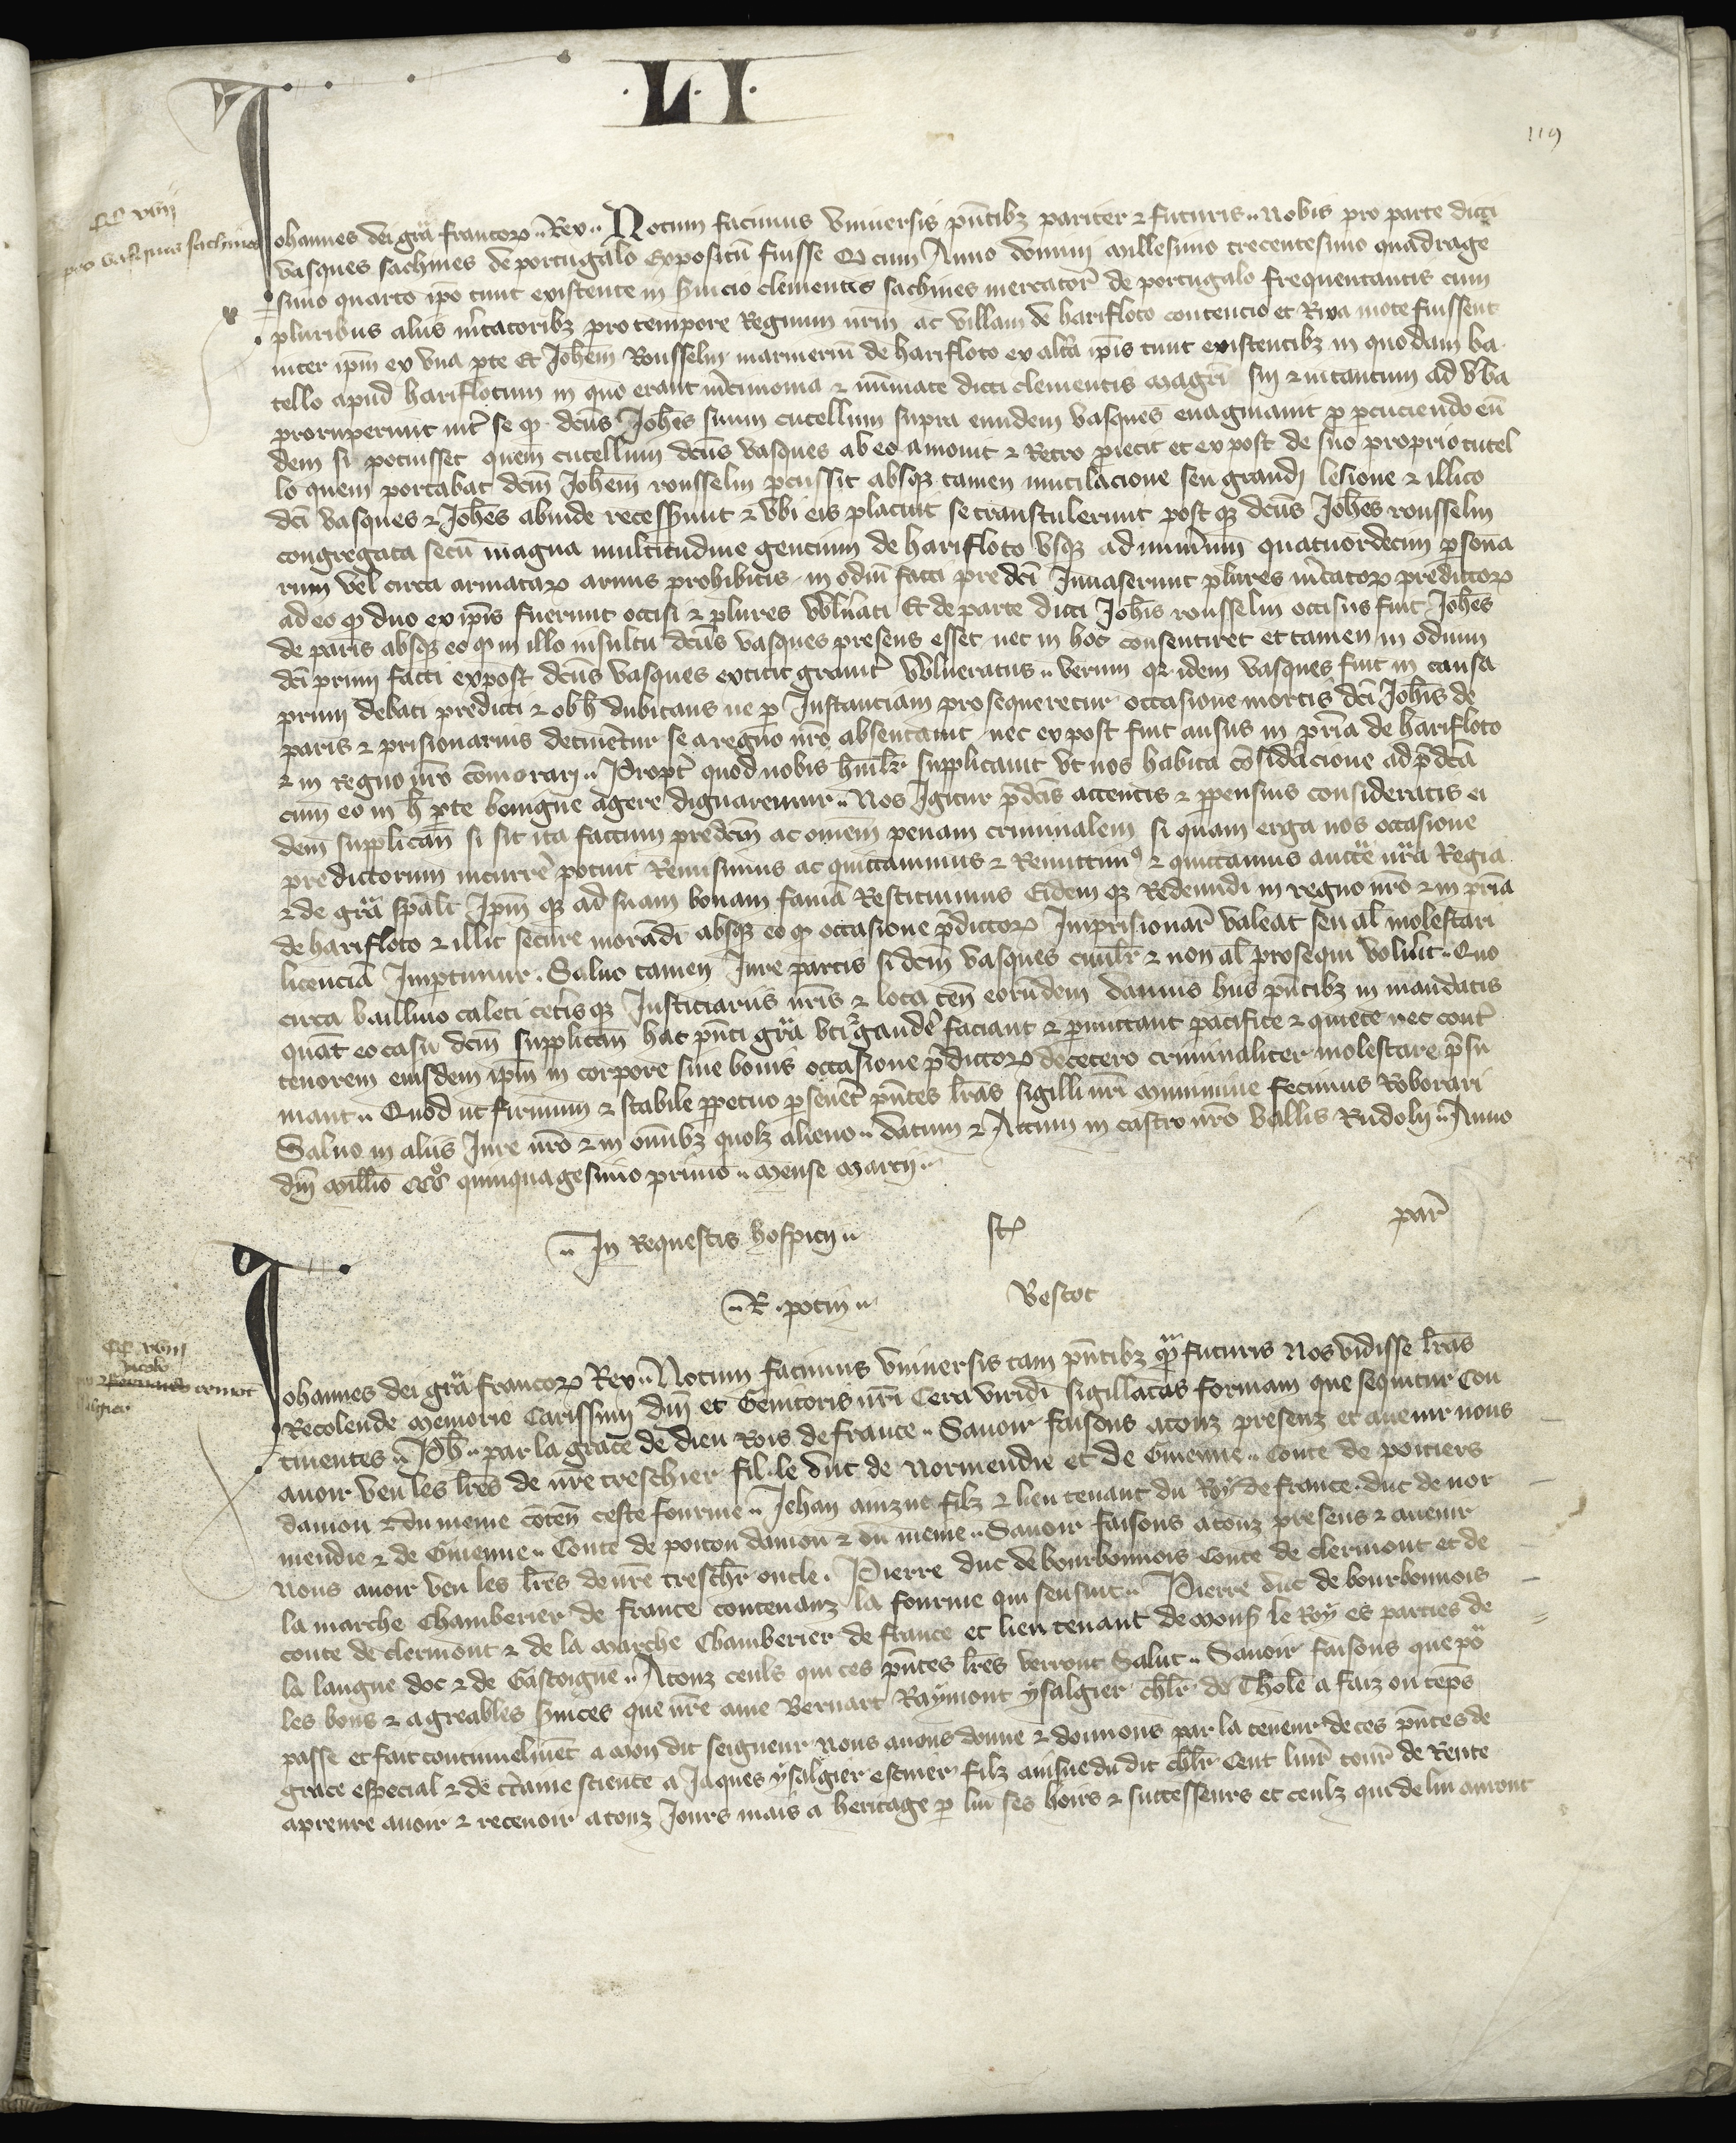 ·L·I·
119
CC xviij
pro vasques sachines
Johannes dei gr̃a francoꝝ Rex Notum facimus Vniuersis pñtibꝫ pariter ⁊ futuris Nobis pro parte dicti
vasques sachines de portugalo Expositũ fuisse Qꝫ cum Anno domini millesimo trecentesimo quadrage
simo quarto ip̃o tunc existente in seruicio clementes sachines mercatoꝝ de portugalo frequentantis cum
pluribus aliis m̃catoribꝫ pro tempore Regnum nr̃m ac villam de harifloto contencio et Rixa mote fuissent
inter ip̃m ex vna p̱te Et Joh̃em Rousselin marinerium de harifloto ex alt̃a ip̃is tunc existentibꝫ in quodam ba
tello apud hariflotum in quo erant m̃cimonia ⁊ dicti clementis magr̃i sui ⁊ intantum ad v̾ba
proruperunt int̾ se qꝫ dcũs Joh̃es suum cutellum supra eundem vasques euaginauit ꝓ ꝑcuciendo eũ
dem si potuisset quem cutellum dcũs vasques ab eo amouit ⁊ Retro ꝓiecit et ex post de suo proprio cutel
lo quem portabat dcm̃ Joh̃em rousselin ꝑcussit absqꝫ tamen mutilacione seu grandi lesione ⁊ illico
dcĩ vasques ⁊ Joh̃es abinde recesserunt ⁊ vbi eis placuit se transtulerunt post qꝫ dcũs Joh̃es rousselin
congregata secũ magna multitudine gencium de harifloto vsqꝫ ad numerum quatuordecim ꝑsona
rum vel circa armataꝝ armis prohibitis in odiũ facti predcĩ Inuaserunt plures m̃catoꝝ predictoꝝ
adeo qꝫ duo ex ip̃is fuerunt occisi ⁊ plures vulñati Et de parte dicti Joh̃is rousselin occisus fuit Joh̃es
de paris absqꝫ eo qꝫ in illo insultu dcũs vasques presens esset nec in hoc consentiret et tamen in odium
dcĩ primi facti expost dcũs vasques extitit grauit̾ vulneratus verum qꝛ idem vasques fuit in causa
primi debati predicti ⁊ ob h̾ dubitans ne ꝑ Justiciam prosequeretur occasione mortis dcĩ Joh̃is de
paris ⁊ prisionarius detinet̃ur se a regno nr̃o absentauit nec ex post fuit ausus in pr̃ia de harifloto
⁊ in regno nr̃o com̃orari Propt̾ quod nobis hum̃lr supplicauit vt nos habita con̾sidacione ad p̾dcã
cum eo in h̾ ꝑte benigne agere dignaremur Nos Igitur p̾dcĩs attentis ⁊ ꝑpensius consideratis ei
dem supplicañ si sit ita factum predcm̃ ac om̃em penam criminalem si quam erga nos occasione
predictorum incurrẽ potuit Remisimus ac quittauimus ⁊ Remittimꝰ ⁊ quittamus auctẽ nr̃a Regia
⁊ de gr̃a sp̃ali Ip̃m qꝫ ad suam bonam famã Restituimus Eidem qꝫ Redeundi in regno nr̃o ⁊ in pr̃ia
de harifloto ⁊ illic secure morãdi absqꝫ eo qꝫ occasione p̾dictoꝝ Imprisionar̃ valeat seu al̃ molestari
licenciã Imꝑtimur. Saluo tamen Jure partis si dcm̃ vasques ciuilr̃ ⁊ non al̃ prosequi voluit̃ Quo
circa baillivo caleti cet̾isqꝫ Justiciariis nr̃is ⁊ loca teñ eorũdem damus hiis pñtibꝫ in mandatis
quat̃ eo casu dcm̃ supplicañ hac pñti gr̃a vti ⁊ gaudẽ faciant ⁊ ꝑmittant pacifice ⁊ quiete nec cont̾
tenorem eiusdem ip̃m in corpore siue bonis occasione p̾dictoꝝ de cetero criminaliter molestare p̾su
mant Quod ut firmum ⁊ stabile ꝑpetuo ꝑseuet̾ pñtes lr̃as sigilli nr̃i munimine fecimus Roborari
Saluo in aliis Jure nr̃o ⁊ in om̃ibꝫ quolꝫ alieno Datum ⁊ Actum in castro nr̃o Vallis Rudolii Anno
dñi mill̃io ccc⁰ quinquagesimo primo mense marcij
In Requestis hospicij
par̃
R. potin
Vestoc
CC xviij
Jacobo
Johannes dei gr̃a francoꝝ Rex Notum facimus Vniuersis tam pñtibꝫ qᵃm futuris Nos vidisse lr̃as
Recolende memorie Carissimi dñi et Genitoris nr̃i Cera viridi sigillatas formam que sequitur Con
tinentes Ph̃ par la grace de dieu Rois de france Sauoir faisons atouz presenz et auenir nous
auoir veu les lr̃es de nr̃e treschier fil le duc de normendie et de Guienne conte de poitiers
danion ⁊ du meine coten̄ ceste fourme Jehan ainzne filz ⁊ lieu tenant du Roy de france duc de nor
mendie ⁊ de Guienne Conte de poitou danion ⁊ du meine Sauoir faisons atouz presens ⁊ auenir
Nous auoir veu les lr̃es de nr̃e treschr̃ oncle Pierre duc de bourbonnois Conte de clermont et de
la marche Chamberier de france contenanz la fourme qui sensuit Pierre duc de bourbonnois
conte de clermont ⁊ de la marche Chamberier de france et lieu tenant de mons̃ le Roy es parties de
la langue doc ⁊ de Gascoigne Atouz ceuls qui ces pñtes lr̃es verront Salut Sauoir faisons que po̾
les bons ⁊ agreables s̃uices que nr̃e ame Bernart Raymont ysalgier chlr̃ de Thol̃e a faiz ou tẽps
passe et fait continuelm̃et a mon dit seigneur nous auons donne ⁊ donnons par la teneur de ces pñtes de
grace especial ⁊ de c̾taine science a Jaques ysalgier escuier filz ainsne du dit chlr̃ Cent liur̃ tour̃ de Rente
aprenre auoir ⁊ receuoir atouz Jours mais a heritage ꝑ lui ses hoirs ⁊ successeurs et ceulz qui de lui auront